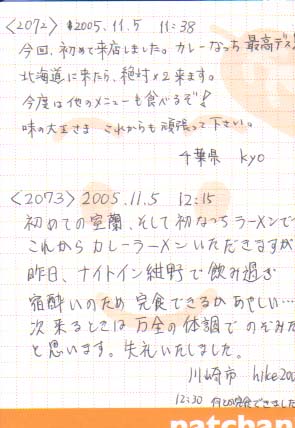 <2072> 2005.11.5 11:38
今回、初めて来店しました。カレーなっち最高デス!
北海道に来たら、絶対×2来ます。
今度は他のメニューも食べるぞ!
味の大王さま これからも頑張って下さい。
千葉県 kyo
<2073> 2005.11.5 12:15
初めての室蘭、そして初なっちラーメンで
これからカレーラーメンいただきますが
昨日、ナイトイン紺野で飲み過ぎ
宿酔いのため完食できるかあやしい…
次来るときは万全の体調でのぞみた
と思います。失礼いたしました。
川崎市 hike200
12:30 何とか完食できました
patchan